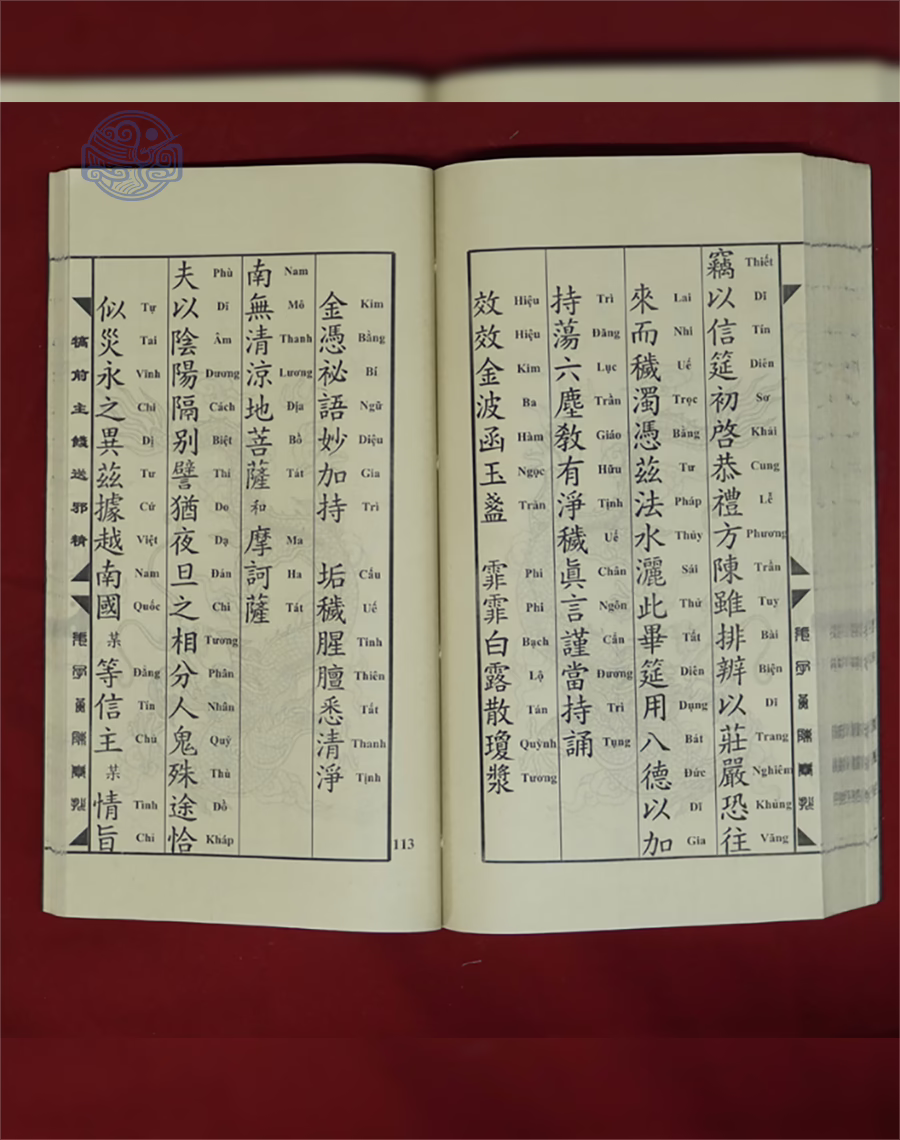 竊以信筵初啓恭禮方陳雖排辦以莊嚴恐往
Thiết Dĩ Tín Diên Sơ Khải Cung Lễ Phương Trần Tuy Bài Biện Dĩ Trang Nghiêm Khủng Vãng
來而穢濁憑茲法水灑此畢筵用八德以加
Lai Nhi Uế Trọc Bằng Tư Pháp Thủy Sái Thử Tất Diên Dụng Bát Đức Dĩ Gia
持蕩六塵敎有淨穢眞言謹當持誦
Trì Đãng Lục Trần Giáo Hữu Tịnh Uế Chân Ngôn Cẩn Đương Trì Tụng
效效金波函玉盞 霏霏白露散瓊漿
Hiệu Hiệu Kim Ba Hàm Ngọc Trản Phi Phi Bạch Lộ Tán Quỳnh Tương
金憑祕語妙加持 垢穢腥膻悉清淨
Kim Bằng Bí Ngữ Diệu Gia Trì Cấu Uế Tinh Thiên Tất Thanh Tịnh
南無清涼地菩薩和摩訶薩
Nam Mô Thanh Lương Địa Bồ Tát Ma Ha Tát
夫以陰陽隔別譬猶夜旦之相分人鬼殊途恰
Phù Dĩ Âm Dương Cách Biệt Thí Do Dạ Đán Chi Tương Phân Nhân Quỷ Thù Đồ Kháp
似災永之異茲據越南國某等信主某情旨
Tự Tai Vĩnh Chi Dị Tư Cứ Việt Nam Quốc Đẳng Tín Chủ Tình Chỉ
犒前主餞送邪精
113